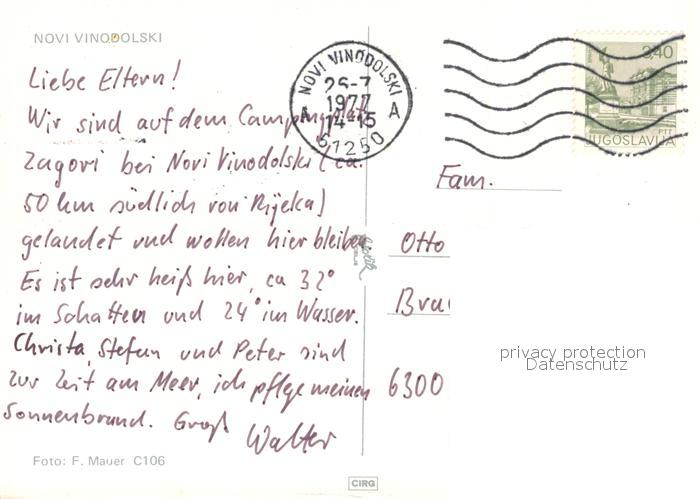 NOVI VINODOLSKI
Liebe Eltern!
Wir sind auf dem Campingplatz
Zagori bei Novi Vinodolski (ca.
50 km südlich von Rijeka)
gelandet und wollen hier bleiben
Es ist sehr heiß hier, ca 32°
im Schatten und 24° im Wasser.
Christa, Stefan und Peter sind
zur Zeit am Meer, ich pflege meinen
Sonnenbrand. Gruß
Walter
Foto: F. Mauer C106
NOVI VINODOLSKI
26-7
1977
A 14-15 A
51250
2,40
PTT
JUGOSLAVIJA
Fam.
Otto
6300
privacy protection
Datenschutz
CIRG